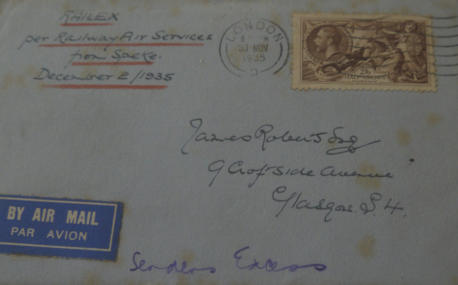 RAILEX
per Railway Air Services
from Speke.
December 2/1935
LONDON
30 NOV
1935
HALF CROWN
James Robert Esq
9 Croftside Avenue
Glasgow. S.4.
BY AIR MAIL
PAR AVION
Senders Excess